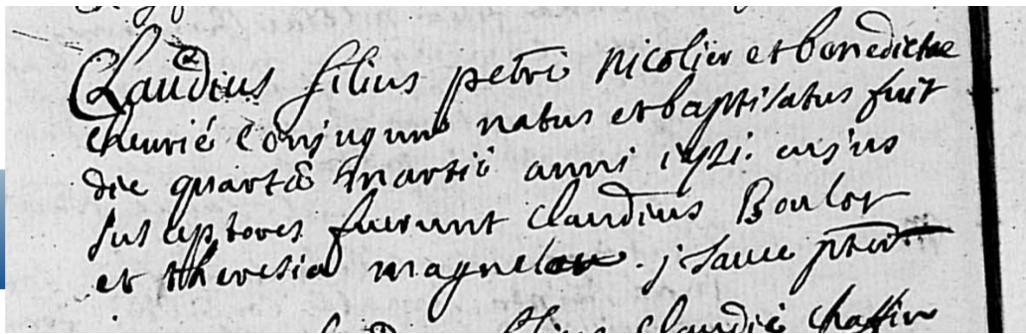 Claudius filius petri Nicolier et benedictae
cheurié Conjugum natus et baptisatus fuit
die quartâ martii anni cujus
susceptores fuerunt claudius Boulot
et theresia
filius claudii chaffin